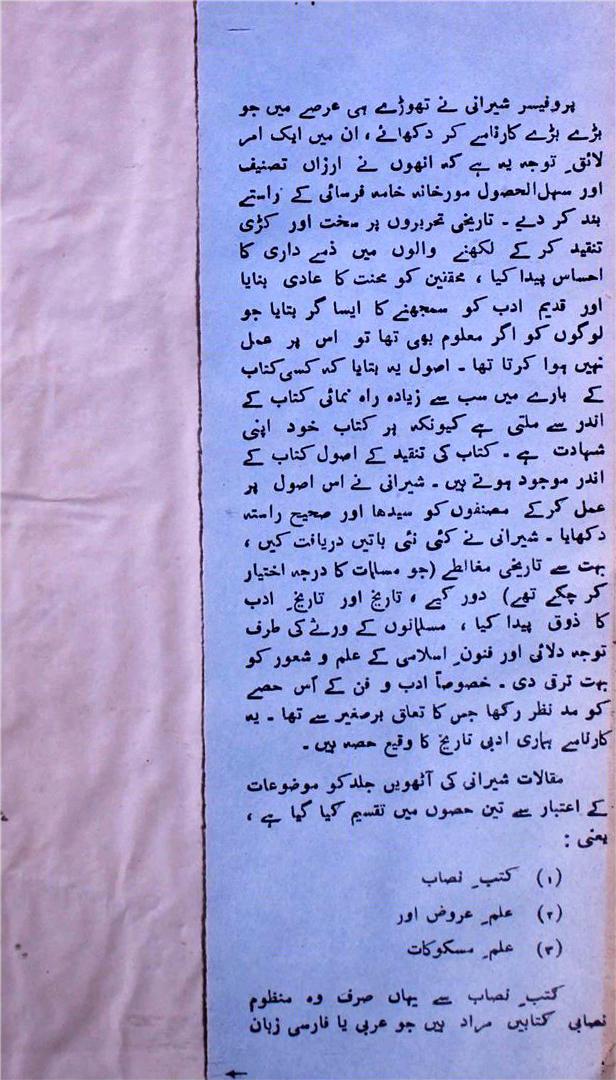 پروفیسر شیرانی نے تھوڑے ہی عرصے میں جو
بڑے بڑے کارنامے کر دکھائے ، ان میں ایک امر
لائقِ توجہ یہ ہے کہ انھوں نے ارزاں تصنیف
اور سہل‌الحصول مورخانہ خامہ فرسائی کے راستے
بند کر دیے ۔ تاریخی تحریروں پر سخت اور کڑی
تنقید کر کے لکھنے والوں میں ذمے داری کا
احساس پیدا کیا ، محققین کو محنت کا عادی بنایا
اور قدیم ادب کو سمجھنے کا ایسا گر بتایا جو
لوگوں کو اگر معلوم بھی تھا تو اس پر عمل
نہیں ہوا کرتا تھا ۔ اصول یہ بتایا کہ کسی کتاب
کے بارے میں سب سے زیادہ راہ نمائی کتاب کے
اندر سے ملتی ہے کیونکہ ہر کتاب خود اپنی
شہادت ہے ۔ کتاب کی تنقید کے اصول کتاب کے
اندر موجود ہوتے ہیں ۔ شیرانی نے اس اصول پر
عمل کرکے مصنفوں کو سیدھا اور صحیح راستہ
دکھایا ۔ شیرانی نے کئی نئی باتیں دریافت کیں ،
بہت سے تاریخی مغالطے (جو مسلمات کا درجہ اختیار
کر چکے تھے) دور کیے ، تاریخ اور تاریخِ ادب
کا ذوق پیدا کیا ، مسلمانوں کے ورثے کی طرف
توجہ دلائی اور فنونِ اسلامی کے علم و شعور کو
بہت ترقی دی ۔ خصوصاً ادب و فن کے اُس حصے
کو مد نظر رکھا جس کا تعلق برصغیر سے تھا ۔ یہ
کارنامے ہماری ادبی تاریخ کا وقیع حصہ ہیں ۔
مقالات شیرانی کی آٹھویں جلد کو موضوعات
کے اعتبار سے تین حصوں میں تقسیم کیا گیا ہے ،
یعنی :
(۱) کتبِ نصاب
(۲) علمِ عروض اور
(۳) علمِ مسکوکات
کتبِ نصاب سے یہاں صرف وہ منظوم
نصابی کتابیں مراد ہیں جو عربی یا فارسی زبان